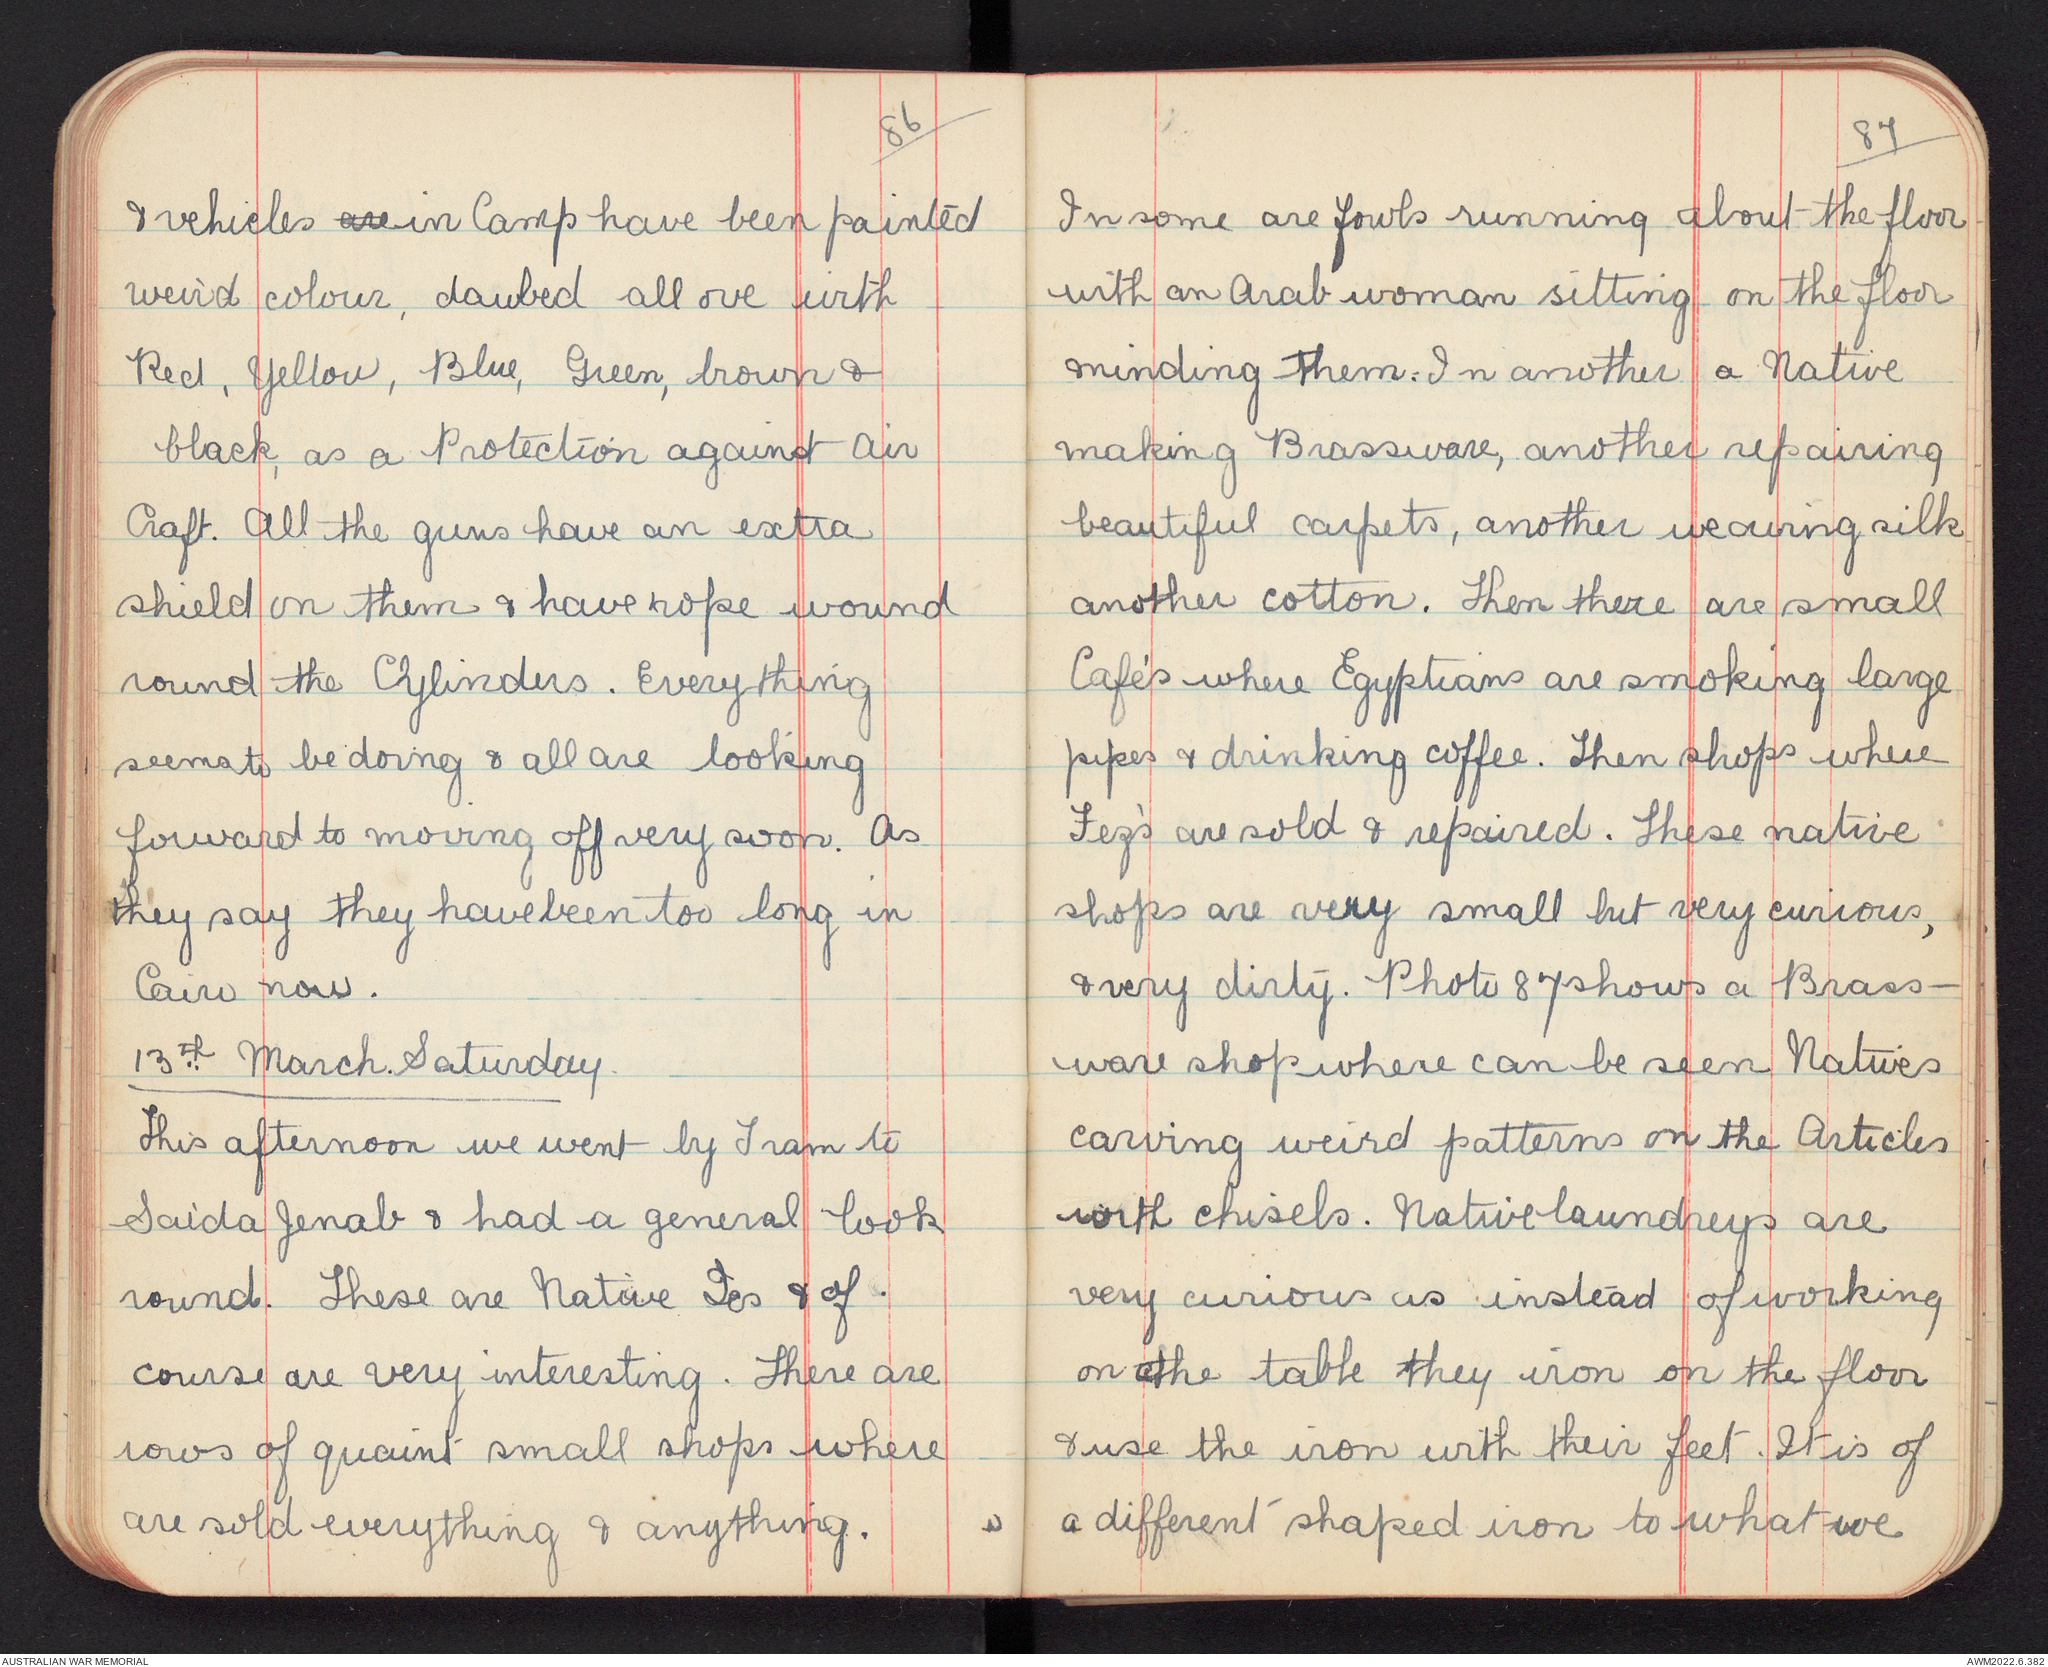 86
& vehicles are in Camp have been painted
weird colour, daubed all ove with
Red, Yellow, Blue, Green, brown &
black, as a Protection against Air
Craft. All the guns have an extra
shield on them & have rope wound
round the Cylinders. Everything
seems to be doing & all are looking
forward to moving off very soon. As
they say they have been too long in
Cairo now.
13th March. Saturday.
This afternoon we went by Tram to
Saida Jenab & had a general look
round. These are Native & of
course are very interesting. There are
rows of quaint small shops where
are sold everything & anything.
87
In some are fowls running about the floor
with an Arab woman sitting on the floor
minding them. In another a Native
making Brassware, another repairing
beautiful carpets, another weaving silk
another cotton. Then there are small
Café's where Egyptians are smoking large
pipes & drinking coffee. Then shops where
Fez's are sold & repaired. These native
shops are very small but very curious,
& very dirty. Photo 87 shows a Brass-
ware shop where can be seen Natives
carving weird patterns on the Articles
with chisels. Native laundreys are
very curious as instead of working
on the table they iron on the floor
& use the iron with their feet. It is of
a different shaped iron to what we
AUSTRALIAN WAR MEMORIAL
AWM2022.6.382